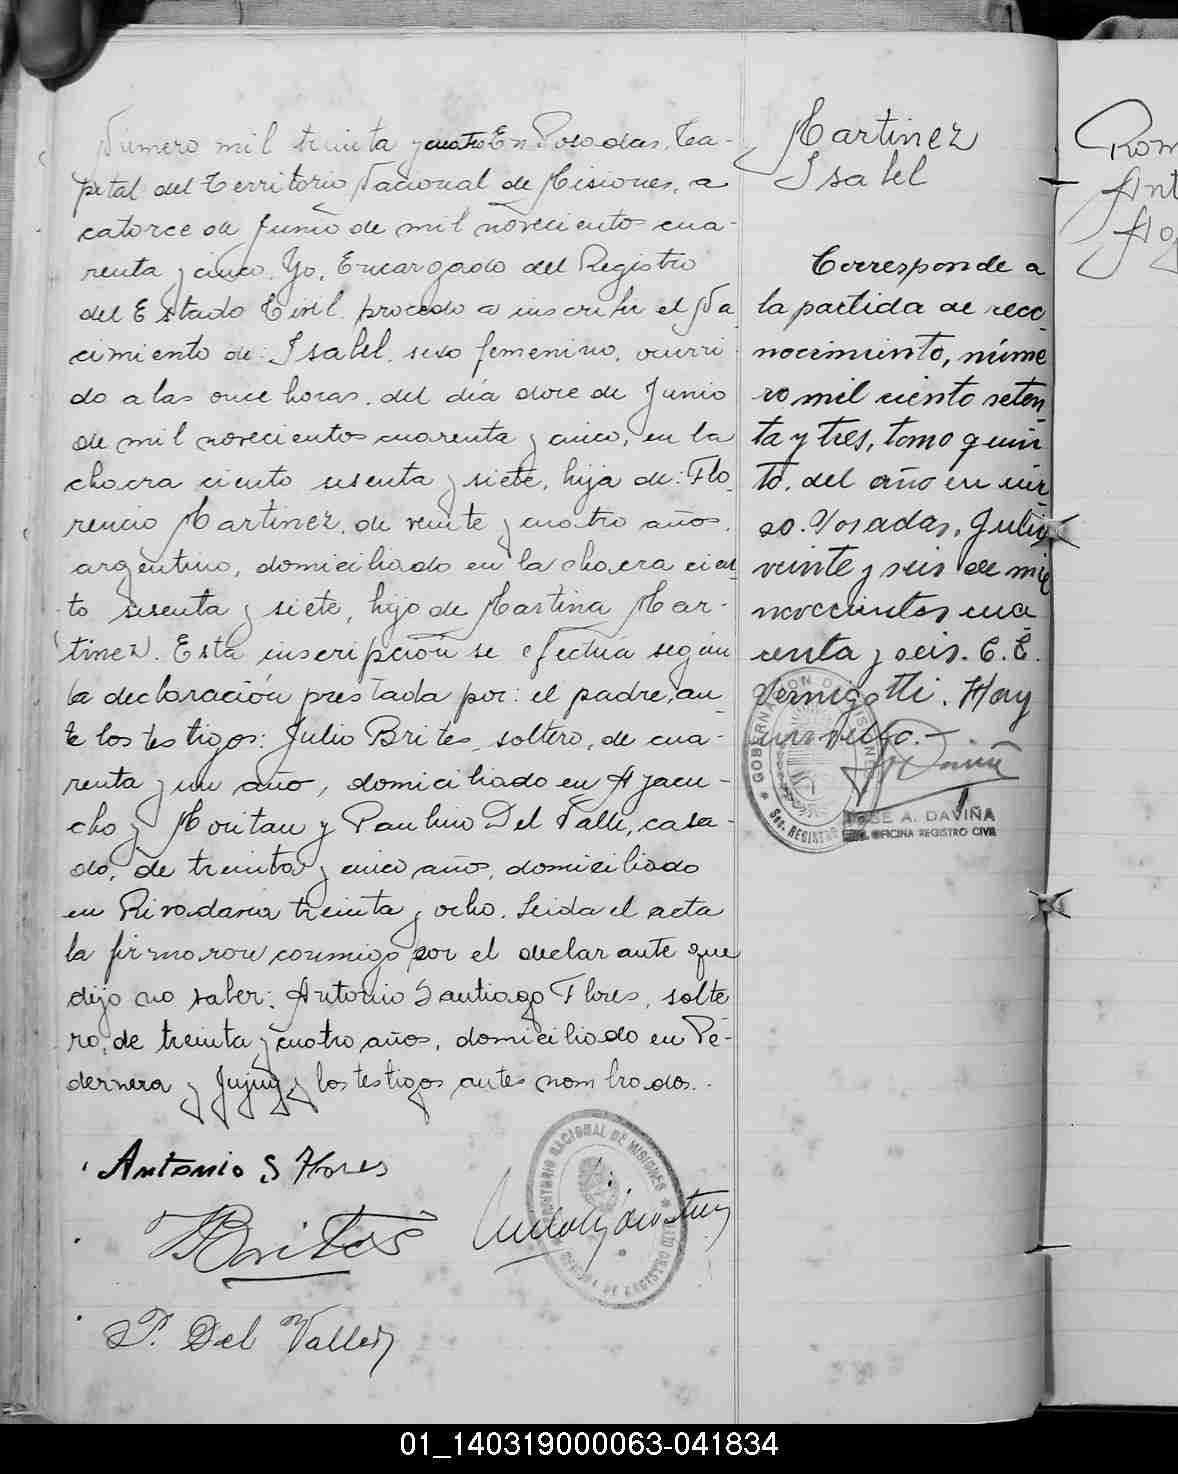 Número mil treinta y cuatro En Posadas, Ca-
pital del Territorio Nacional de Misiones, a
catorce de Junio de mil novecientos cua-
renta y cinco. Yo, Encargado del Registro
del Estado Civil procedo a inscribir el Na
cimiento de: Isabel, sexo femenino, ocurri
do a las once horas, del día doce de Junio
de mil novecientos cuarenta y cinco, en la
chacra ciento sesenta y siete, hija de: Flo
rencio Martinez, de veinte y cuatro años,
argentino, domiciliado en la chacra cien
to sesenta y siete, hijo de Martina Mar-
tinez. Esta inscripción se efectúa según
la declaración prestada por: el padre, an
te los testigos: Julio Brites, soltero, de cua-
renta y un año, domiciliado en Ayacu-
cho y Moritan y Paulino Del Valle, casa-
do, de treinta y cinco años, domiciliado
en Rivadavia treinta y ocho. Leida el acta
la firmaron conmigo por el declarante que
dijo no saber: Antonio Santiago Flores, solte
ro, de treinta y cuatro años, domiciliado en Pe-
dernera y Jujuy y los testigos antes nombrados.
Antonio S Flores
Brites
P. Del Valle
TERRITORIO NACIONAL DE MISIONES
OFICINA DE REGISTRO
Martinez
Isabel
Corresponde a
la partida de reco
nocimiento, núme
ro mil ciento seten
ta y tres, tomo quin
to, del año en cur
so. Posadas, Julio
veinte y seis de mil
novecientos cua
renta y seis. C. E.
Vernigotti. Hay
un sello.-
GOBERNACION DE MISIONES
Sec. REGISTRO
JOSE A. DAVIÑA
OFICINA REGISTRO CIVIL
Rom
Ant
01_140319000063-041834